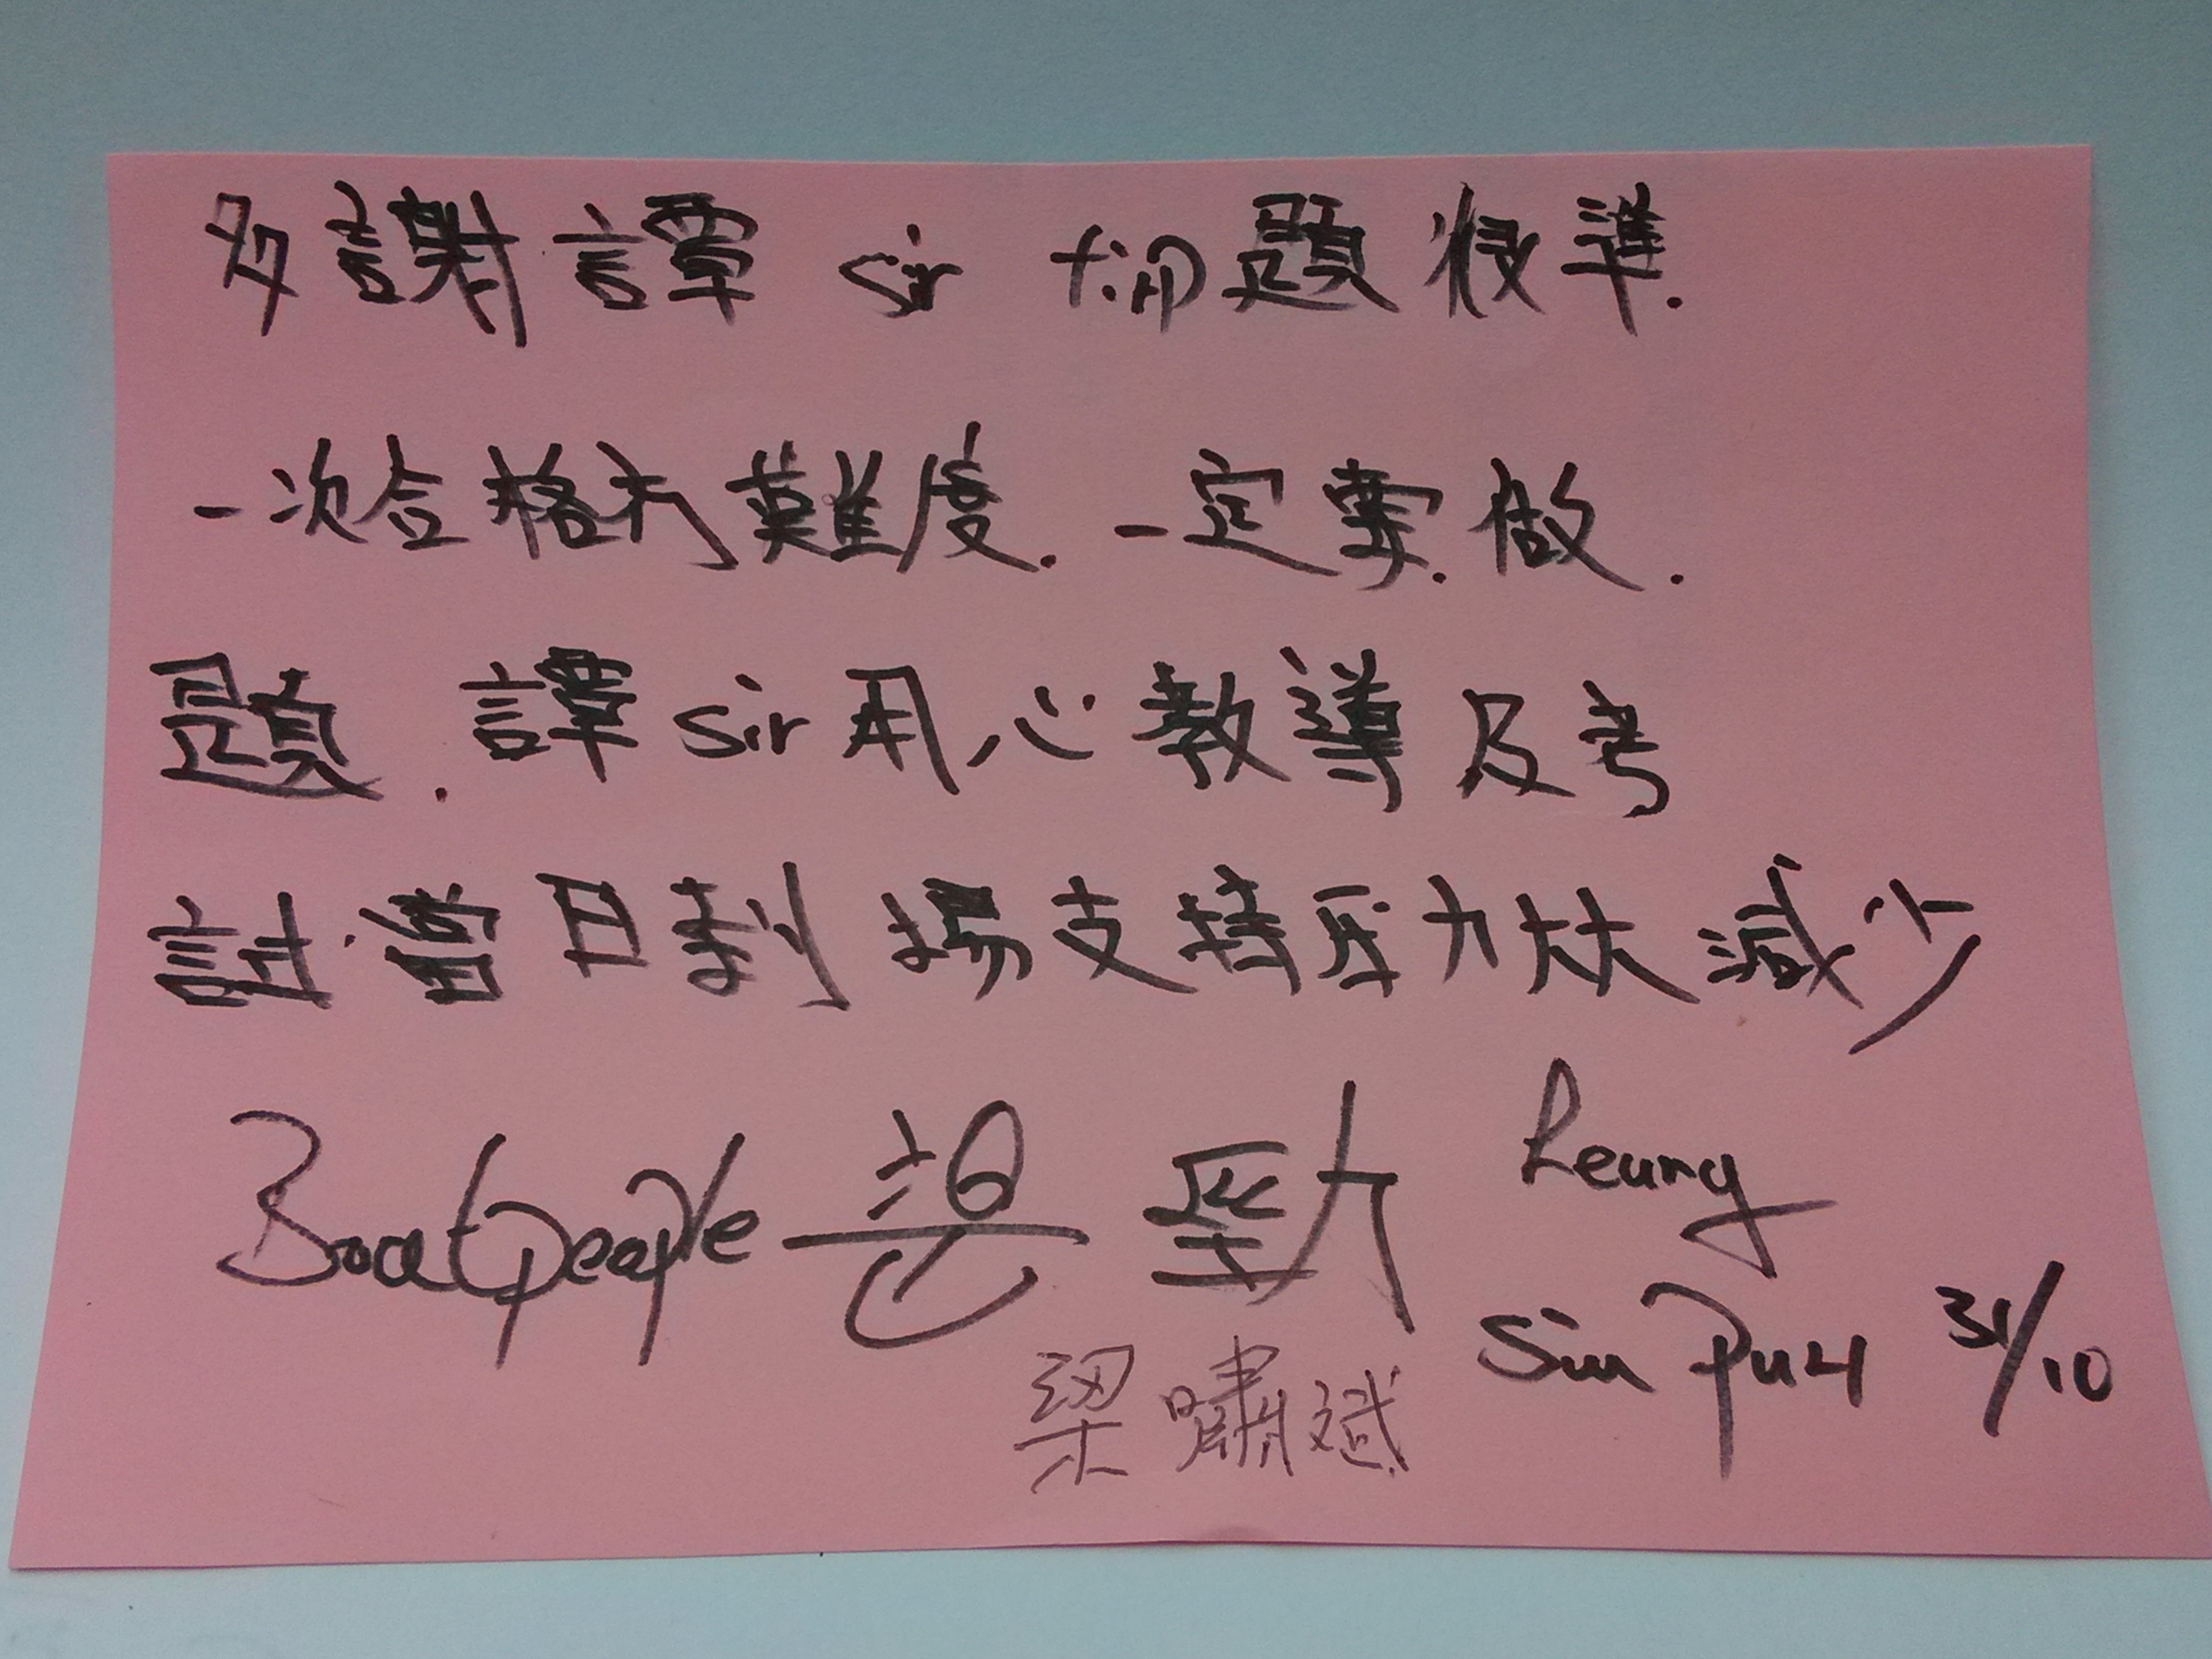 多謝譚 sir 十: 題很準.
一次合格冇難度. 一定要. 做.
題. 譚 sir 用心教導及考
試當日到場支持壓力大大減少
Boatpeople
Leung
Siu Pun 31/10
梁嘯斌